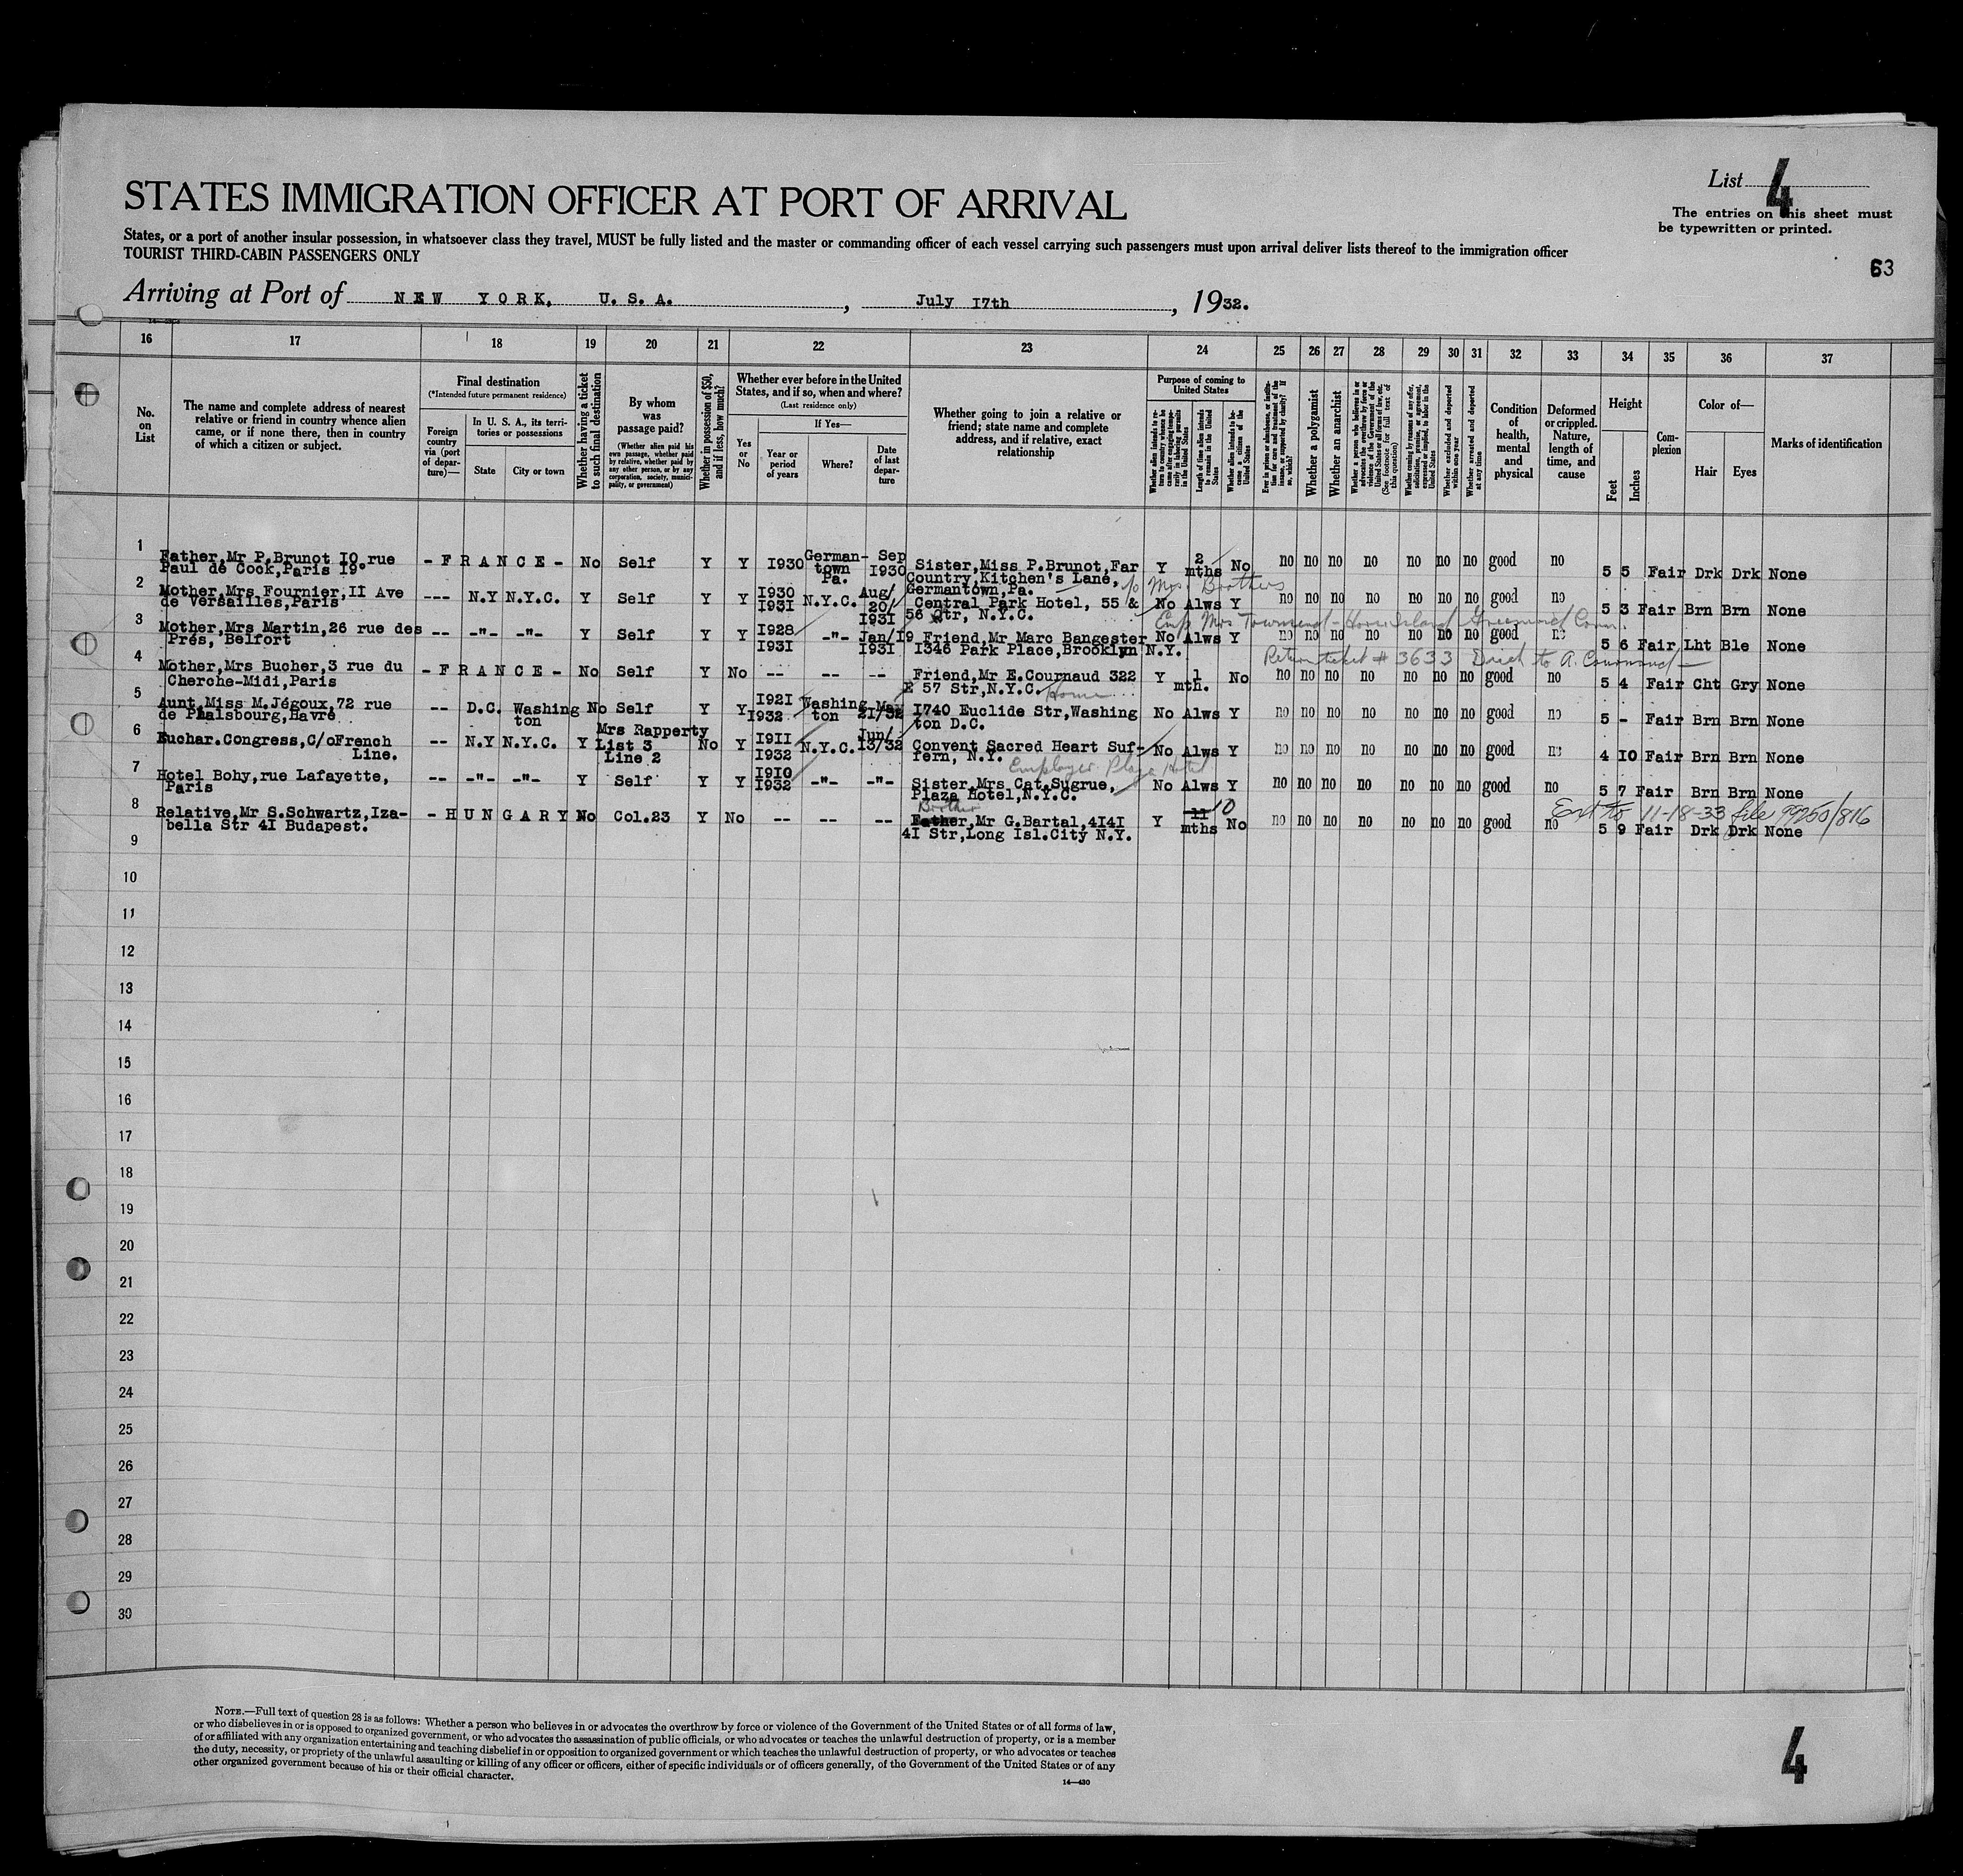 List 4
The entries on this sheet must
be typewritten or printed.
63
STATES IMMIGRATION OFFICER AT PORT OF ARRIVAL
States, or a port of another insular possession, in whatsoever class they travel, MUST be fully listed and the master or commanding officer of each vessel carrying such passengers must upon arrival deliver lists thereof to the immigration officer
TOURIST THIRD-CABIN PASSENGERS ONLY
Arriving at Port of NEW YORK, U. S. A. , July I7th , 1932.
16 17 18 19 20 21 22 23 24 25 26 27 28 29 30 31 32 33 34 35 36 37
No.
on
List
The name and complete address of nearest
relative or friend in country whence alien
came, or if none there, then in country
of which a citizen or subject.
Final destination
(*Intended future permanent residence)
Foreign
country
via (port
of depar-
ture)—
In U. S. A., its terri-
tories or possessions
State City or town
Whether having a ticket
to such final destination
By whom
was
passage paid?
(Whether alien paid his
own passage, whether paid
by relative, whether paid by
any other person, or by any
corporation, society, munici-
pality, or government)
Whether in possession of $50,
and if less, how much?
Whether ever before in the United
States, and if so, when and where?
(Last residence only)
Yes
or
No
If Yes—
Year or
period
of years
Where?
Date
of last
depar-
ture
Whether going to join a relative or
friend; state name and complete
address, and if relative, exact
relationship
Purpose of coming to
United States
Whether alien intends to re-
turn to country whence he
came after engaging tempo-
rarily in laboring pursuits
in the United States
Length of time alien intends
to remain in the United
States
Whether alien intends to be-
come a citizen of the
United States
Ever in prison or almshouse, or institu-
tion for care and treatment of the
insane, or supported by charity? If
so, which?
Whether a polygamist
Whether an anarchist
Whether a person who believes in or
advocates the overthrow by force or
violence of the Government of the
United States or all forms of law, etc.
(See footnote for full text of
this question)
Whether coming by reasons of any offer,
solicitation, promise, or agreement,
expressed or implied, to labor in the
United States
Whether excluded and deported
within one year
Whether arrested and deported
at any time
Condition
of
health,
mental
and
physical
Deformed
or crippled.
Nature,
length of
time, and
cause
Height
Feet
Inches
Com-
plexion
Color of—
Hair Eyes
Marks of identification
1 Father,Mr P.Brunot IO rue - F R A N C E - No Self Y Y I930 German- Sep Sister,Miss P.Brunot,Far Y 2 No no no no no no no no good no 5 5 Fair Drk Drk None
Paul de Cock,Paris I9° town I930 Country,Kitchen's Lane, mths
Pa. Germantown,Pa. Mrs. Brothers
2 Mother,Mrs Fournier,II Ave --- N.Y N.Y.C. Y Self Y Y I930 N.Y.C. Aug/ Central Park Hotel, 55 & No Alws Y no no no no no no no good no 5 3 Fair Brn Brn None
de Versailles,Paris I93I 20/ 56 Str, N.Y.C.
I93I
Emp Mrs Townsend - Greenwich Conn.
3 Mother,Mrs Martin,26 rue des -- -"- -"- Y Self Y Y I928 -"- Jan/I9 Friend,Mr Marc Bangester No Alws Y no no no no no no no good no 5 6 Fair Lht Ble None
Prés, Belfort I93I I93I I346 Park Place,Brooklyn N.Y.
Return ticket # 3633
4 Mother,Mrs Bucher,3 rue du - F R A N C E - No Self Y No -- -- -- Friend,Mr E.Cournaud 322 Y 1 No no no no no no no no good no 5 4 Fair Cht Gry None
Cherche-Midi,Paris E 57 Str,N.Y.C. mth.
Home
5 Aunt,Miss M.Jégoux,72 rue -- D.C. Washing No Self Y Y I92I Washing May I740 Euclide Str,Washing No Alws Y no no no no no no no good no 5 - Fair Brn Brn None
de Phalsbourg,Havre ton I932 ton 2I/32 ton D.C.
6 Euchar.Congress,C/oFrench -- N.Y N.Y.C. Y Mrs Rapperty No Y I9II N.Y.C. Jun/ Convent Sacred Heart Suf- No Alws Y no no no no no no no good no 4 IO Fair Brn Brn None
Line. List 3 I932 I3/32 fern, N.Y.
Line 2
Employer Plaza Hotel
7 Hotel Bohy,rue Lafayette, -- -"- -"- Y Self Y Y I9IO -"- -"- Sister,Mrs Cat.Sugrue, No Alws Y no no no no no no no good no 5 7 Fair Brn Brn None
Paris I932 Plaza Hotel,N.Y.C.
Brother 10 Ext to 11-18-33 file 99250/816
8 Relative,Mr S.Schwartz,Iza- - H U N G A R Y No Col.23 Y No -- -- -- Father,Mr G.Bartal,4I4I Y 11 No no no no no no no no good no 5 9 Fair Drk Drk None
bella Str 4I Budapest. 4I Str,Long Isl.City N.Y. mths
9
10
11
12
13
14
15
16
17
18
19
20
21
22
23
24
25
26
27
28
29
30
NOTE.—Full text of question 28 is as follows: Whether a person who believes in or advocates the overthrow by force or violence of the Government of the United States or of all forms of law,
or who disbelieves in or is opposed to organized government, or who advocates the assassination of public officials, or who advocates or teaches the unlawful destruction of property, or is a member
of or affiliated with any organization entertaining and teaching disbelief in or opposition to organized government or which teaches the unlawful destruction of property, or who advocates or teaches
the duty, necessity, or propriety of the unlawful assaulting or killing of any officer or officers, either of specific individuals or of officers generally, of the Government of the United States or of any
other organized government because of his or their official character.
14—430
4